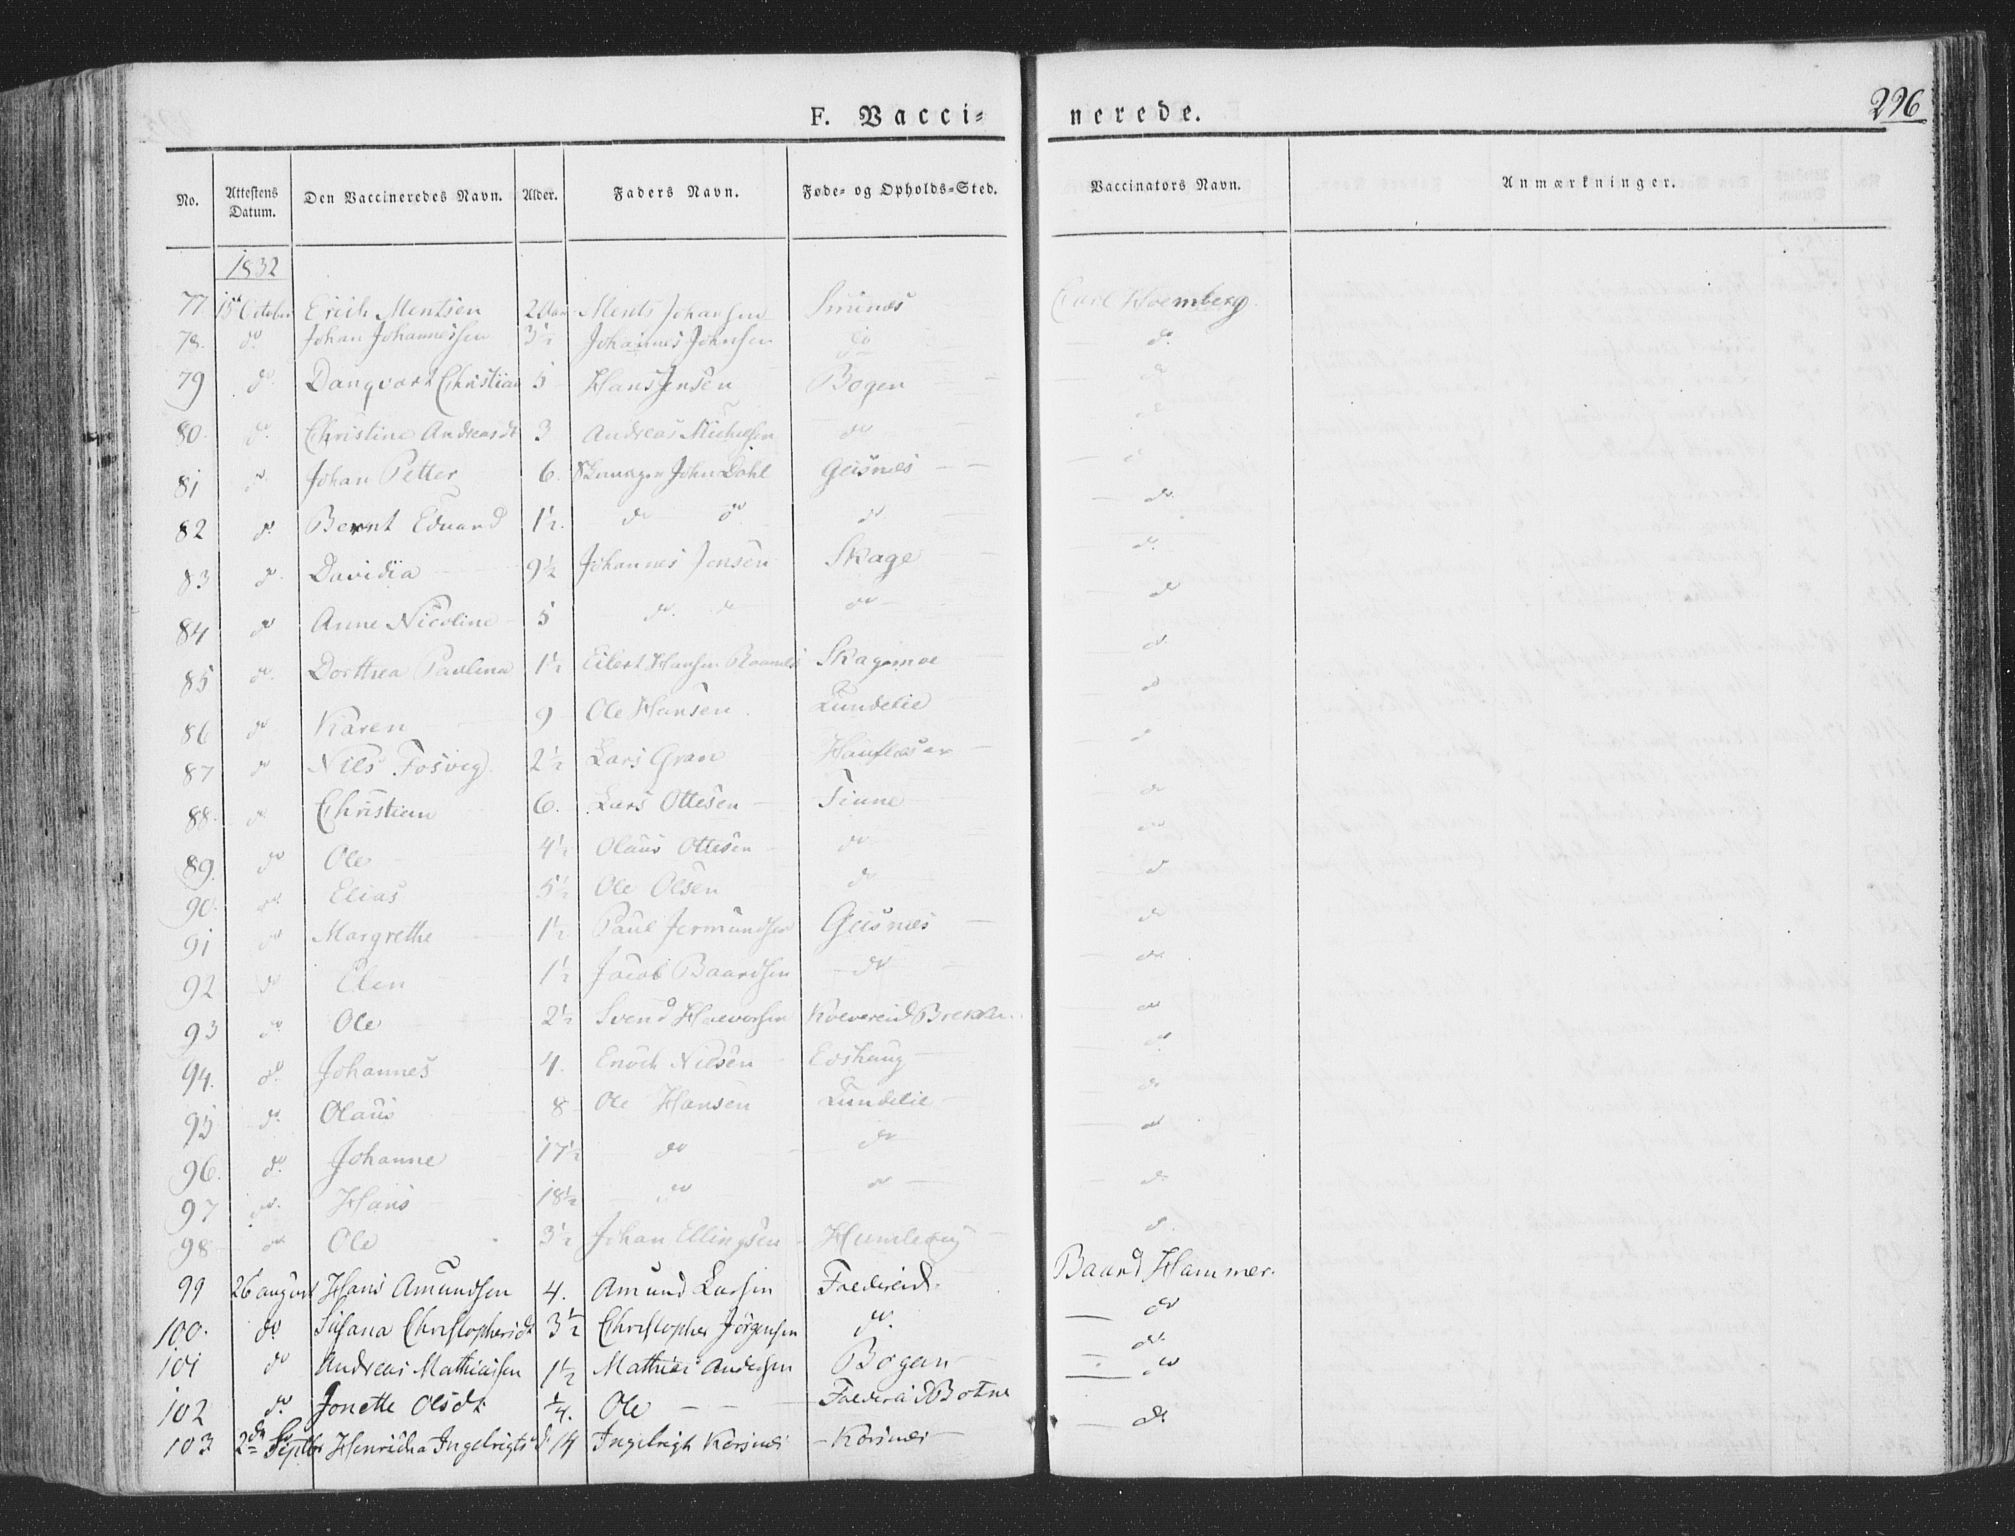 F. Vacci= nerede. 226
No. Attestens Datum. Den Vaccineredes Navn. Alder. Faders Navn. Føde- og Opholds-Sted. Vaccinators Navn. Anmærkninger.
1832
77. 15de October Erich Mentsen 2 Aar Ments Johansen
78. do Johan Johannessen 3½ Johannes Johnsen do do
79 do Danqvart Christian 5 Hans Jensen Bogen do
80. do Christine Andreasdt 3 Andreas Michelsen do do
81 do Johan Petter 6. John Dahl Geisnes do
82 do Bernt Eduard 1½. do do do do
83 do Davidia 9½ Johannes Jensen Skage do
84 do Anne Nicoline 5 do do do do
85 do Dorthea Paulina 1½ Eilert Hansen Skagemoe do
86 do Karen 9 Ole Hansen Lundelie do
87 do Nils Fosvig 2½ Lars Gran do
88. do Christian 6. Lars Ottesen Tinne do
89. do Ole 4½ Olaus Ottesen do do
90. do Elias 5½ Ole Olsen do do
91 do Margrethe 1½ Paul Jermundsen Geisnes do
92 do Elen 1½ Jacob Baardsen do do
93 do Ole 2½ Svend Halvorsen Kolvereid do
94. do Johannes 4. Enoch Nilsen do
95 do Olaus 8 Ole Hansen Lundelie do
96. do Johanne 17½ do do do
97 do Hans 18½ do do do
98 do Ole 3½ Johan Ellingsen do
99 26 august Hans Amundsen 4. Amund Larsen Foldereid. Baard Hammer.
100. do Susana Christophersdt 3½ Christopher Jörgensen do. do
101 do Andreas Mathiassen 1½ Mathias Andersen Bogen do
102 do Jonette Olsdt ¼. Ole Foldereid Botne do
103 2den Septbr Henricha Ingebrigtsd 14 Ingebrigt Korsnes Korsnes do